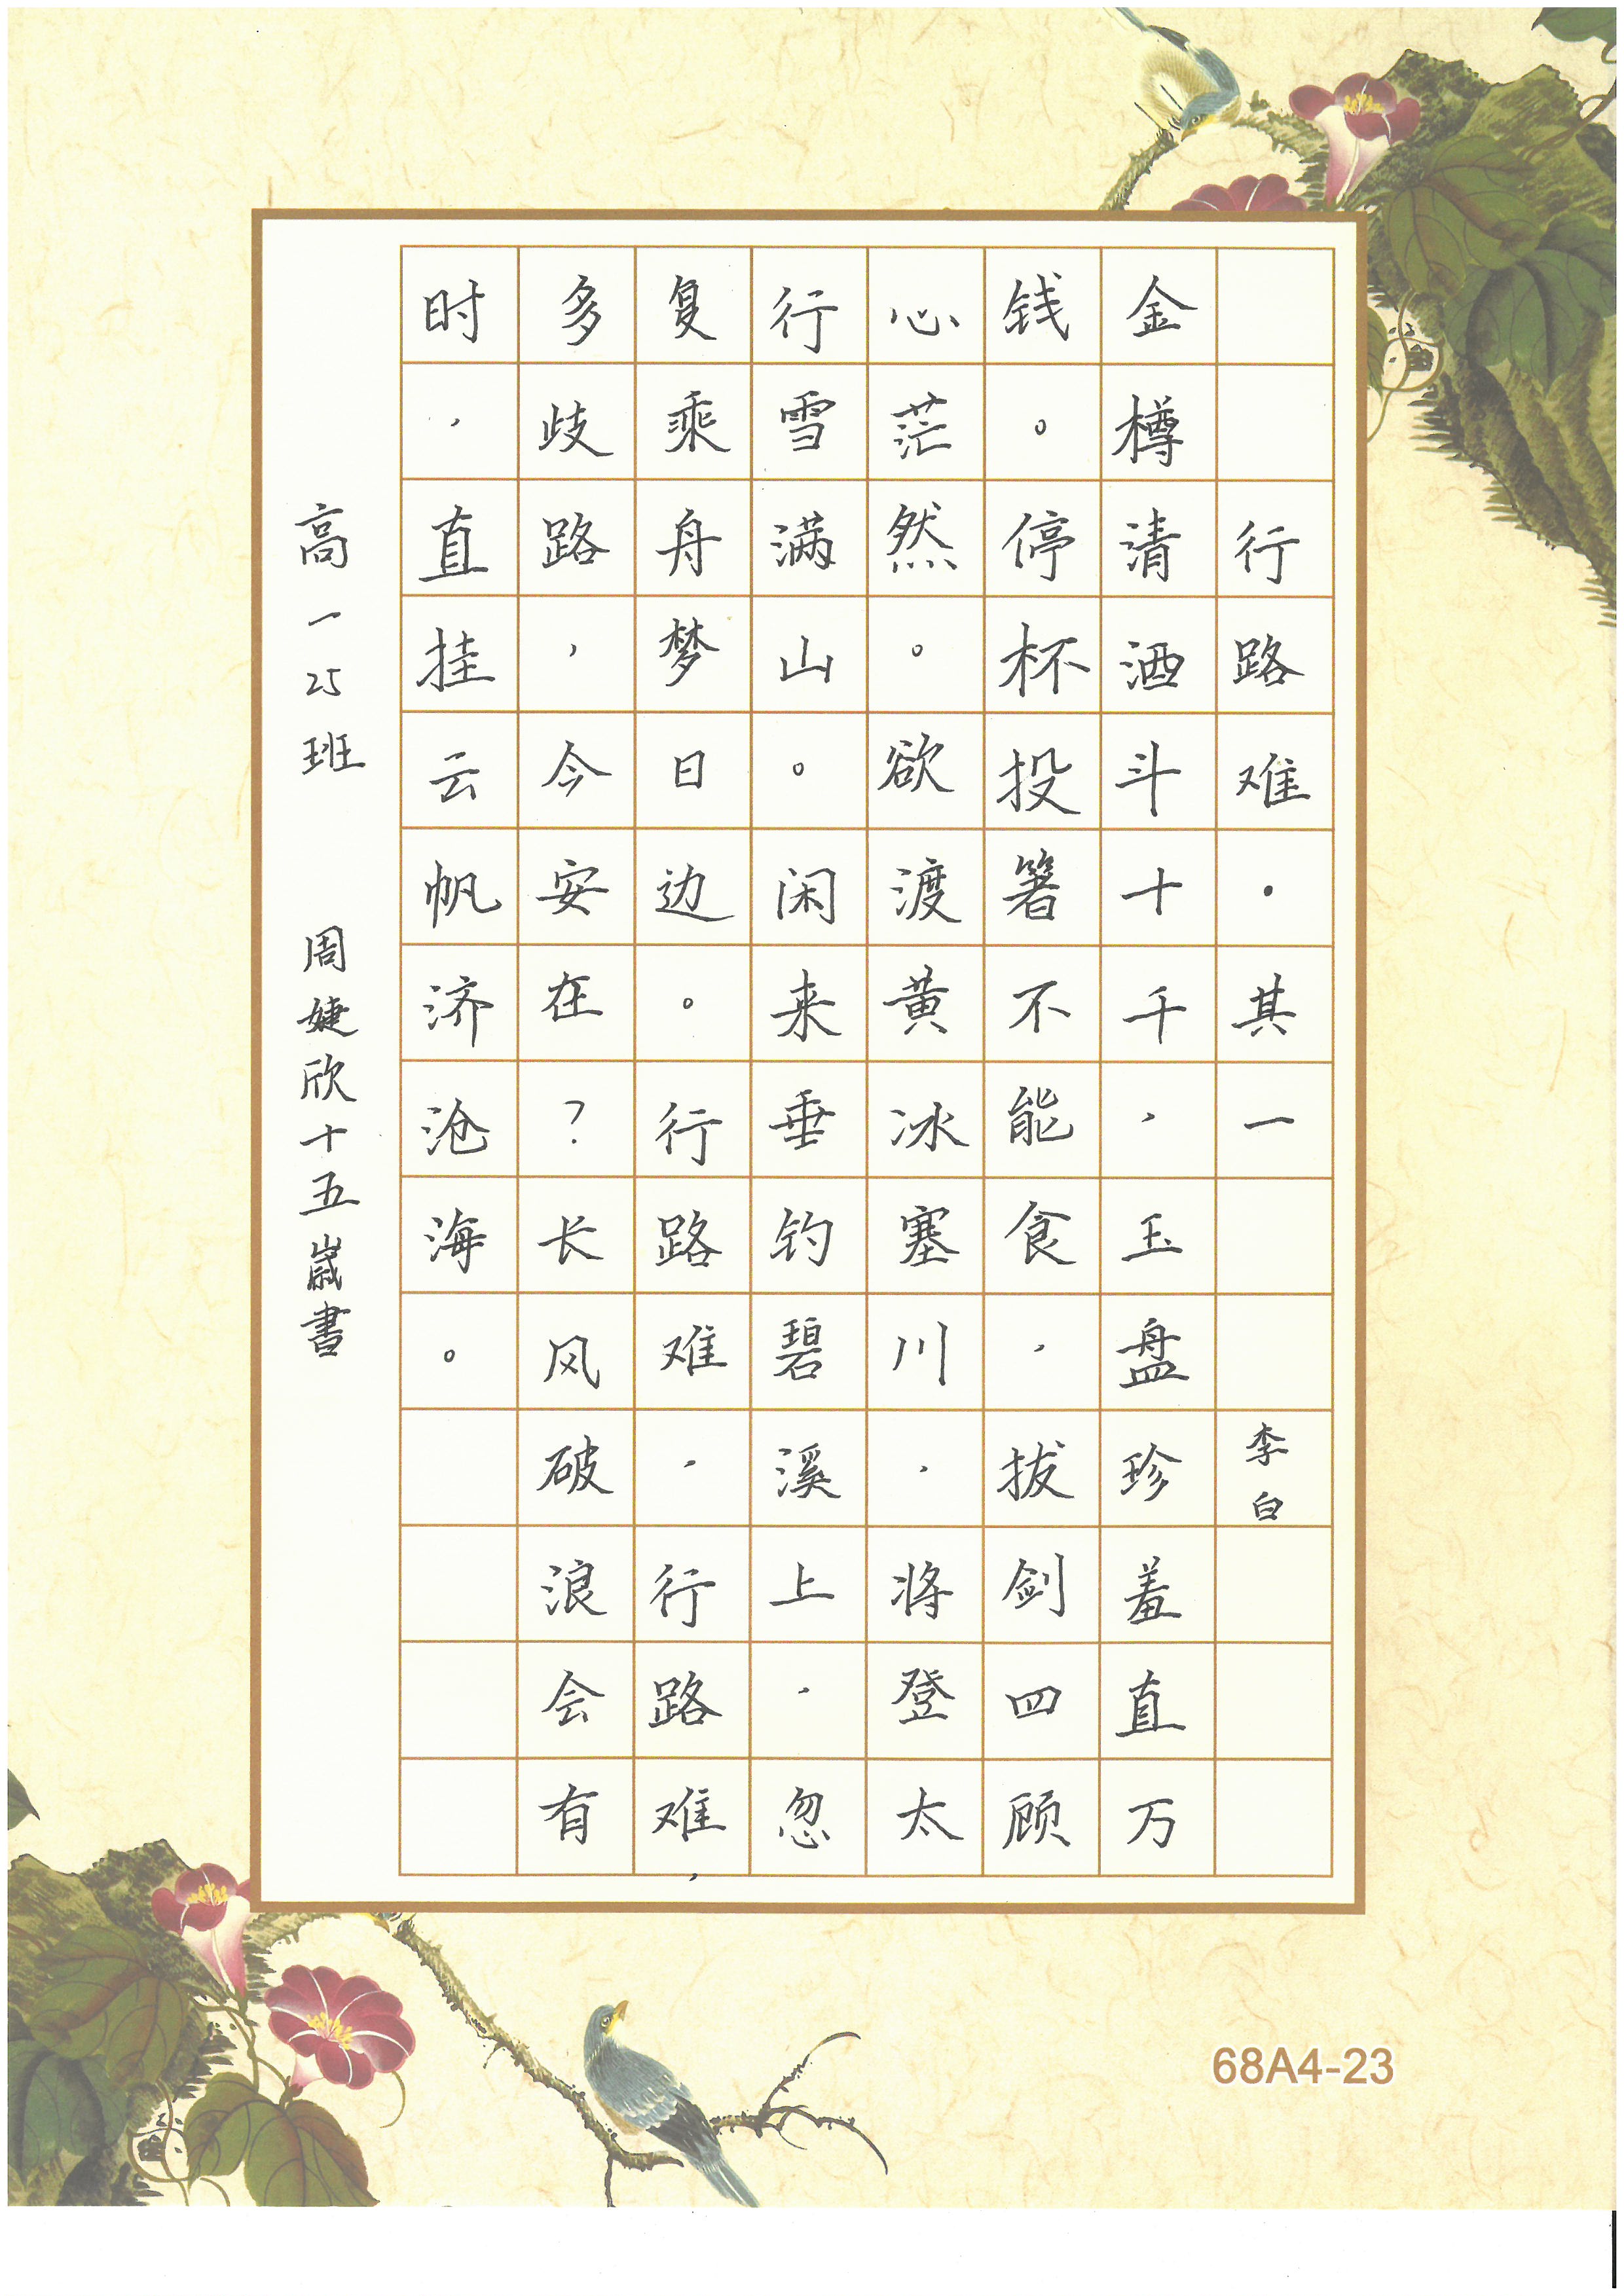 行路难·其一 李白
金樽清酒斗十千，玉盘珍羞直万
钱。停杯投箸不能食，拔剑四顾
心茫然。欲渡黄冰塞川，将登太
行雪满山。闲来垂钓碧溪上，忽
复乘舟梦日边。行路难，行路难，
多歧路，今安在？长风破浪会有
时，直挂云帆济沧海。
高一25班 周婕欣十五嵗書
68A4-23